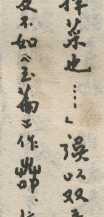 择菜也……」误以双
又不如《玉篇》作